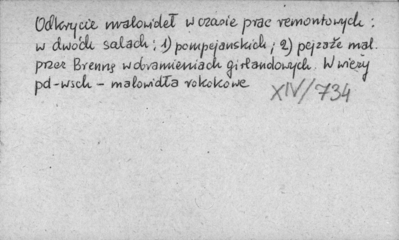 Odkrycie malowideł w czasie prac remontowych:
w dwóch salach; 1) pompejańskich; 2) pejzaże mal.
przez Brennę w obramieniach girlandowych. W wieży
pd-wsch - malowidła rokokowe
XIV/734